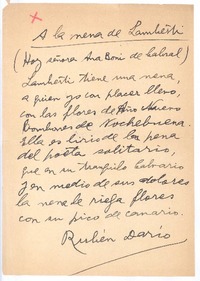 A la nena de Lamberti
(Hoy señora Ana Boni de Cabral)
Lamberti tiene una nena,
a quien yo con placer lleno,
con las flores de Año Nuevo
Bombones de Nochebuena.
Ella es lirio de la pena
del poeta solitario,
que en su tranquilo calvario
y en medio de sus dolores
la nena le riega flores
con su pico de canario.
Rubén Darío